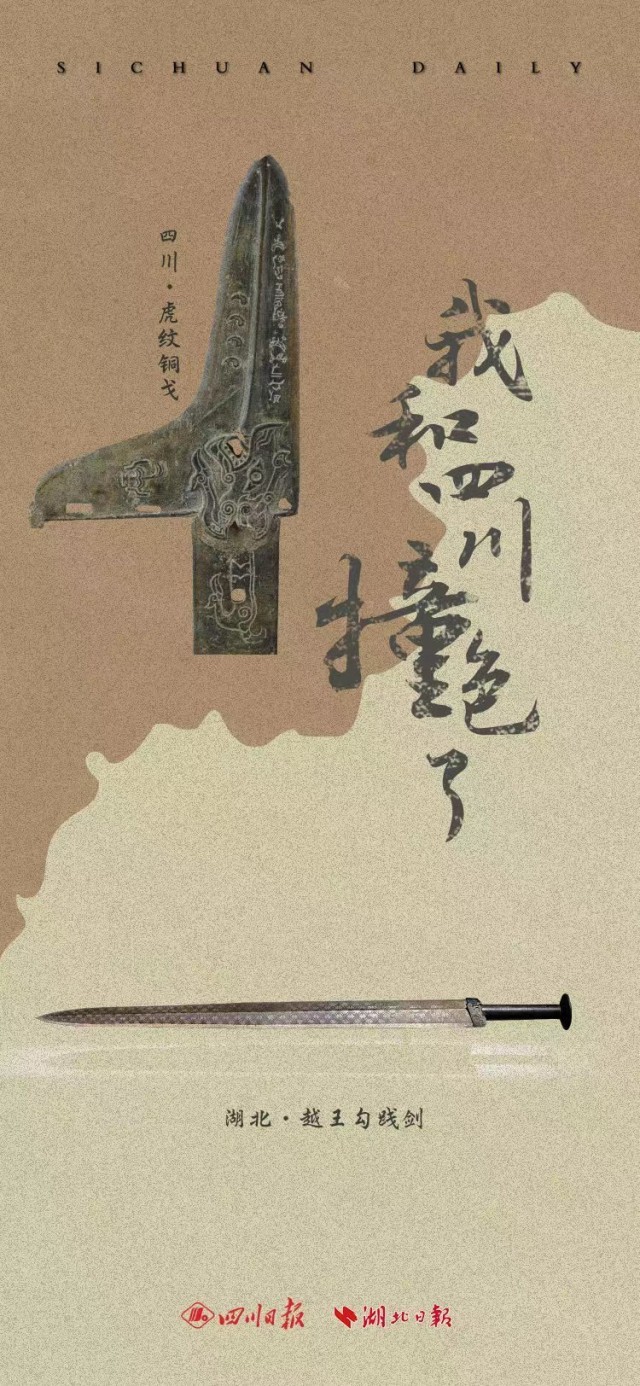 SICHUAN DAILY
四川·虎纹铜戈
我和四川撞色了
湖北·越王勾践剑
四川日报 湖北日報